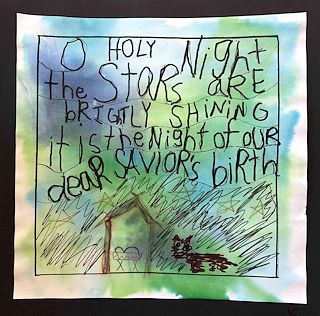 O HOLY Night
the STARS ARE
bRIGTLY SHINING
it IS the Night of OUR
deaR SAVIOR's biRtH